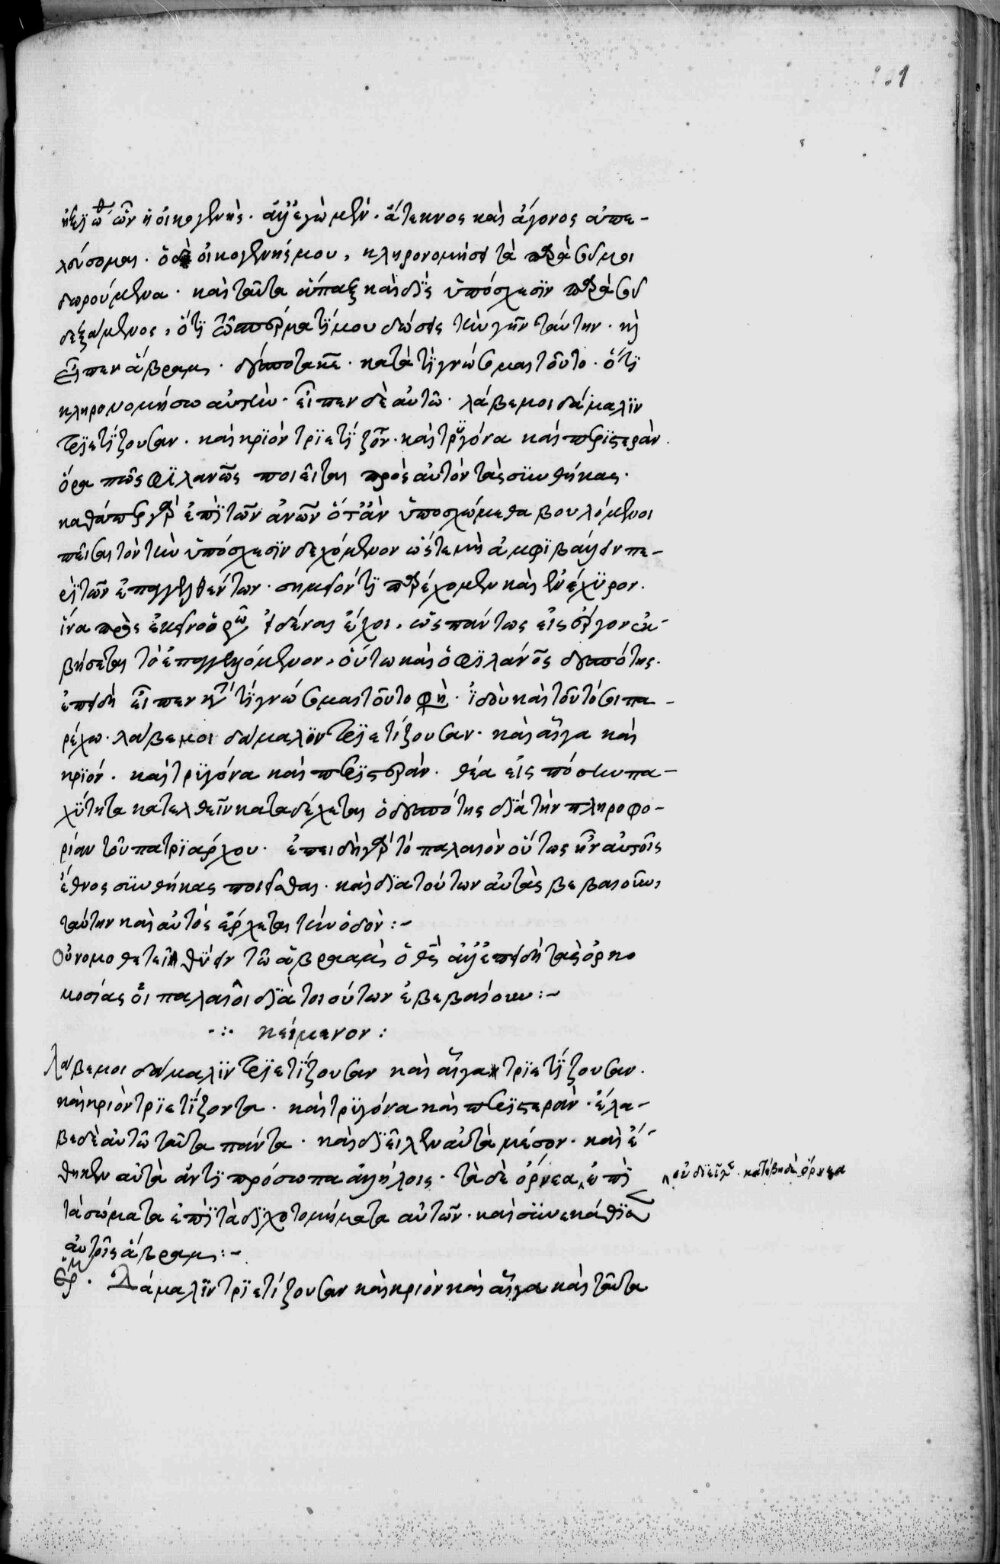 ὢν ὁ οἰκογενὴς· ἀλλ' ἐγὼ μὲν ἄτεκνος καὶ ἄγονος ἀπε-
λεύσομαι· ὁ δὲ οἰκογενής μου, κληρονομήσει τὰ παρὰ σοῦ μοι
δωρούμενα· καὶ ταῦτα ἅπαξ καὶ δὶς ὑπόσχεσϊν παρὰ σοῦ
δεξάμενος, ὅτι τῶ σπέρματί μου δώσεις τὴν γῆν ταύτην· καὶ
εἶπεν ἄβραμ· δέσποτα κε· κατὰ τί γνώσομαι τοῦτο· ὅτι
κληρονομήσω αὐτὴν· εἶπεν δὲ αὐτῶ· λάβε μοι δάμαλϊν
τριετίζουσαν· καὶ κριὸν τριετίζοντα· καὶ τρυγόνα καὶ περιστεράν·
ὅρα πῶς φιλανως ποιεῖται πρὸς αὐτὸν τὰς συνθήκας·
καθάπερ γὰρ ἐπὶ τῶν ανων ὅταν ὑποσχώμεθα βουλόμενοι
πεῖσαι τὸν τὴν ὑπόσχεσϊν δεχόμενον ὥστε μὴ ἀμφιβάλλειν πε-
ρὶ τῶν ἐπαγγελθέντων· σημεῖόν τι παρέχομεν καὶ ἐνέχϋρον·
ἵνα πρὸς ἐκεῖνο ὁρῶν εἰδέναι ἔχοι, ὡς πάντως εἰς ἔργον ἐκ-
βήσεται τὸ ἐπαγγελλόμενον, οὕτω καὶ ὁ φιλανος δεσπότης·
ἐπειδὴ εἶπεν κατὰ τί γνώσομαι τοῦτο φησὶ· ἰδοὺ καὶ τοῦτό σοι πα-
ρέχω· λάβε μοι δάμαλϊν τριετίζουσαν· καὶ αἶγα καὶ
κριόν· καὶ τρϋγόνα καὶ περιστεράν· θέα εἰς πόσην πα-
χύτητα κατελθεῖν καταδέχεται ὁ δεσπότης διὰ τὴν πληροφο-
ρίαν τοῦ πατριάρχου· ἐπειδὴ γὰρ τὸ παλαιὸν οὕτως ἦν αὐτοῖς
ἔθνος συνθήκας ποιεῖσθαι· καὶ διὰ τούτων αὐτὰς βεβαιοῦν,
ταύτην καὶ αὐτὸς ἔρχεται τὴν ὁδὸν:-
Οὐ νομοθετεῖ θύειν τῶ ἀβρααμ ὁ θς ἀλλ' ἐπειδὴ τὰς ὁρκο
μοσίας οἱ παλαιοὶ διὰ τοιούτων ἐβεβαίουν:-
·:· κείμενον:
Λάβε μοι δάμαλιν τριετίζουσαν καὶ αἶγα τριετίζουσαν·
καὶ κριὸν τριετίζοντα· καὶ τρυγόνα καὶ περιστεράν· ἔλα-
βε δὲ αὐτῶ ταῦτα πάντα· καὶ διεῖλεν αὐτὰ μέσον· καὶ ἔ-
θηκεν αὐτὰ ἀντιπρόσωπα ἀλλήλοις· τὰ δὲ ὄρνεα, ἐπὶ οὐ διεῖλεν· κατέβη δὲ ὄρνεα
τὰ σώματα ἐπὶ τὰ διχοτομήματα αὐτῶν· καὶ συνεκάθϊσεν
αὐτοῖς ἄβραμ:-
Δάμαλϊν τριετίζουσαν καὶ κριὸν καὶ αἶγα καὶ ταῦτα